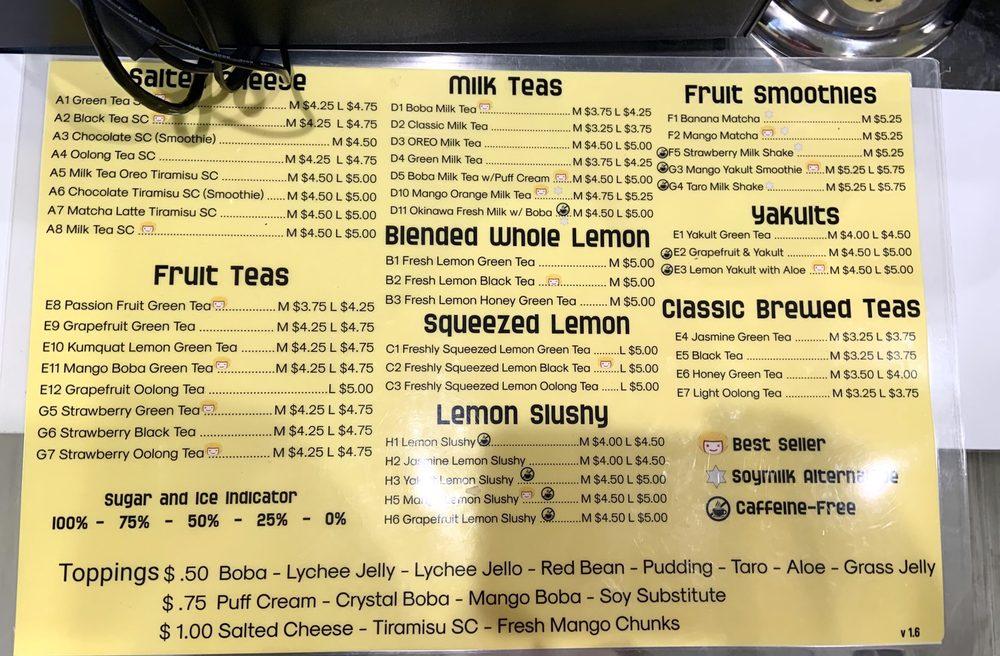 Salted Cheese
A1 Green Tea S M $4.25 L $4.75
A2 Black Tea SC M $4.25 L $4.75
A3 Chocolate SC (Smoothie) M $4.50
A4 Oolong Tea SC M $4.25 L $4.75
A5 Milk Tea Oreo Tiramisu SC M $4.50 L $5.00
A6 Chocolate Tiramisu SC (Smoothie) M $4.50 L $5.00
A7 Matcha Latte Tiramisu SC M $4.50 L $5.00
A8 Milk Tea SC M $4.50 L $5.00
Fruit Teas
E8 Passion Fruit Green Tea M $3.75 L $4.25
E9 Grapefruit Green Tea M $4.25 L $4.75
E10 Kumquat Lemon Green Tea M $4.25 L $4.75
E11 Mango Boba Green Tea M $4.25 L $4.75
E12 Grapefruit Oolong Tea L $5.00
G5 Strawberry Green Tea M $4.25 L $4.75
G6 Strawberry Black Tea M $4.25 L $4.75
G7 Strawberry Oolong Tea M $4.25 L $4.75
Sugar and Ice Indicator
100% - 75% - 50% - 25% - 0%
Milk Teas
D1 Boba Milk Tea M $3.75 L $4.25
D2 Classic Milk Tea M $3.25 L $3.75
D3 OREO Milk Tea M $4.50 L $5.00
D4 Green Milk Tea M $3.75 L $4.25
D5 Boba Milk Tea w/Puff Cream M $4.50 L $5.00
D10 Mango Orange Milk Tea M $4.75 L $5.25
D11 Okinawa Fresh Milk w/ Boba M $4.50 L $5.00
Blended Whole Lemon
B1 Fresh Lemon Green Tea M $5.00
B2 Fresh Lemon Black Tea M $5.00
B3 Fresh Lemon Honey Green Tea M $5.00
Squeezed Lemon
C1 Freshly Squeezed Lemon Green Tea L $5.00
C2 Freshly Squeezed Lemon Black Tea L $5.00
C3 Freshly Squeezed Lemon Oolong Tea L $5.00
Lemon Slushy
H1 Lemon Slushy M $4.00 L $4.50
H2 Jasmine Lemon Slushy M $4.00 L $4.50
H3 Lemon Slushy M $4.50 L $5.00
H5 Lemon Slushy M $4.50 L $5.00
H6 Grapefruit Lemon Slushy M $4.50 L $5.00
Fruit Smoothies
F1 Banana Matcha M $5.25
F2 Mango Matcha M $5.25
F5 Strawberry Milk Shake M $5.25
G3 Mango Yakult Smoothie M $5.25 L $5.75
G4 Taro Milk Shake M $5.25 L $5.75
Yakults
E1 Yakult Green Tea M $4.00 L $4.50
E2 Grapefruit & Yakult M $4.50 L $5.00
E3 Lemon Yakult with Aloe M $4.50 L $5.00
Classic Brewed Teas
E4 Jasmine Green Tea M $3.25 L $3.75
E5 Black Tea M $3.25 L $3.75
E6 Honey Green Tea M $3.50 L $4.00
E7 Light Oolong Tea M $3.25 L $3.75
Best Seller
Soymilk Alternative
Caffeine-Free
Toppings $ .50 Boba - Lychee Jelly - Lychee Jello - Red Bean - Pudding - Taro - Aloe - Grass Jelly
$ .75 Puff Cream - Crystal Boba - Mango Boba - Soy Substitute
$ 1.00 Salted Cheese - Tiramisu SC - Fresh Mango Chunks
v 1.6